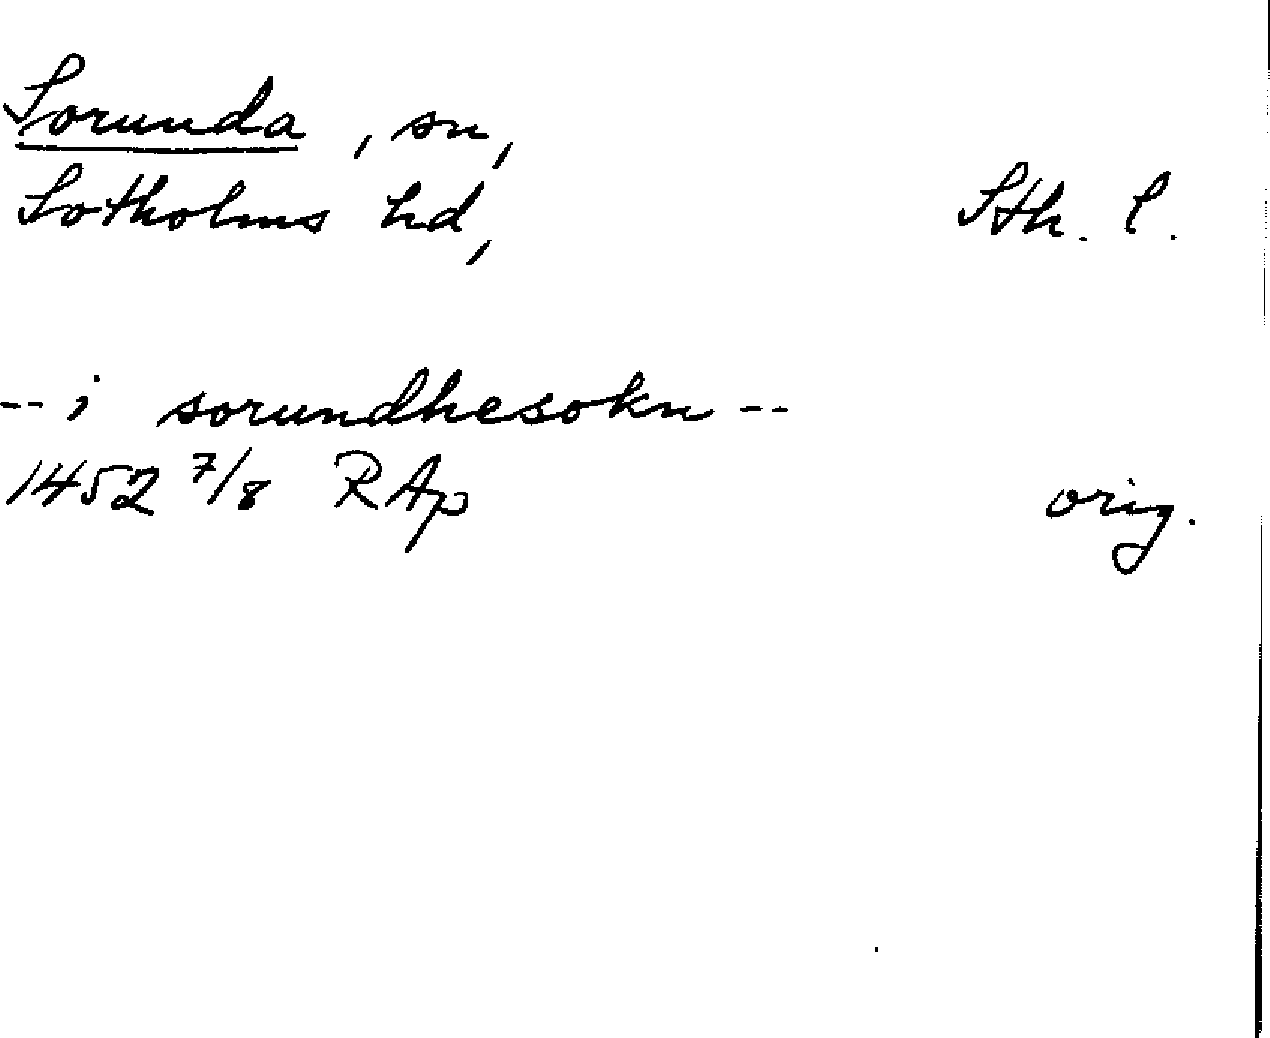 Sorunda, sn,
Sotholms hd, Sth. l.
-- i sorundhesokn --
1452 7/8 RAp orig.